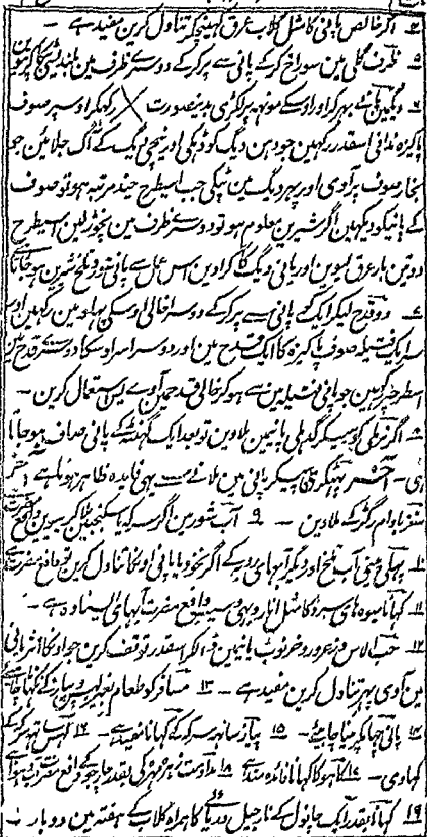 ۴ اگر خالص پانی کا مثل گلاب عرق کھینچکر تناول کرین مفید ہے —
۵ ظرف گلی مین سوراخ کرکے پانی سے پر کرکے دوسرے ظرف مین
۶ دیگمین پانی بہرکر اور اوسکے مونہہ پر لکڑی بدینصورت ╳ رکھکر اوسپر صوف
پاکیزہ ندافی اسقدر رکھین جو دہن دیگ کو ڈہکی اور نیچی دیگ کے آگ جلائین جو
بخار صوف پر آوی اور پہر دیگ مین ٹپکی جب اسطرح چند مرتبہ ہو تو صوف
کے پانیکو دیکھین اگر شیرین معلوم ہو تو دوسرے ظرف مین نچوڑ لین اسیطرح
دو تین بار عرق لیوین اور پانی دیگ کا گرا دین اس عمل سے پانی شور و تلخ شیرین ہو جاتا
۷ دو قدح لیکر ایک کو پانی سے پر کرکے دوسرا خالی اوسکی پہلو مین رکھین اور
سر ایک فتیلہ صوف پاکیزہ کا ایک قدح مین اور دوسرا سر اوسکا دوسرے قدح مین
اسطرح کرین جو پانی فتیلہ مین سے ہوکر خالی قدحمین آوے پس استعمال کرین —
۸ اگر پانیمین ملاوین تو بعد ایک گہنٹے کے پانی صاف ہو جاتا
ہی — پہٹکری پیسکر پانی مین ملانے سے یہی فایدہ ظاہر ہوتا ہے
مغز بادام رگڑ کے ملادین — ۹ آب شور مین اگر سرکہ یا سکنجبین ملا کر پیوین
۱۰ پہلی پینی آب تلخ اور دیگر آبہای ردیہ کے اگر نخود یا پانی اونکا تناول کرین تو دافع مضرت
۱۱ کہانا میوہ ہای سرد کا مثل انار و بہی و سیب دافع مضرت آبہای ایستادہ ہے —
۱۲ حب الآس و زعرور و خرنوب پانیمین ڈالکر اسقدر توقف کرین جو اونکا اثر پانی
مین آوی پہر تناول کرین مفید ہے — ۱۳ مسافر کو طعام بغیر پیاز کے نکہانا چاہئے
۱۴ پانی چہانکر پینا چاہئے — ۱۵ پیاز ساتہہ سرکہ کے کہانا مفید ہے — ۱۶
کہاوی — ۱۷ کاہو کا کہانا فائدہ مند ہے ۱۸
۱۹ کہانا بقدر ایک چانول کے نارجیل دریائی کا ہمراہ گلاب کے ہفتہ مین دوبار